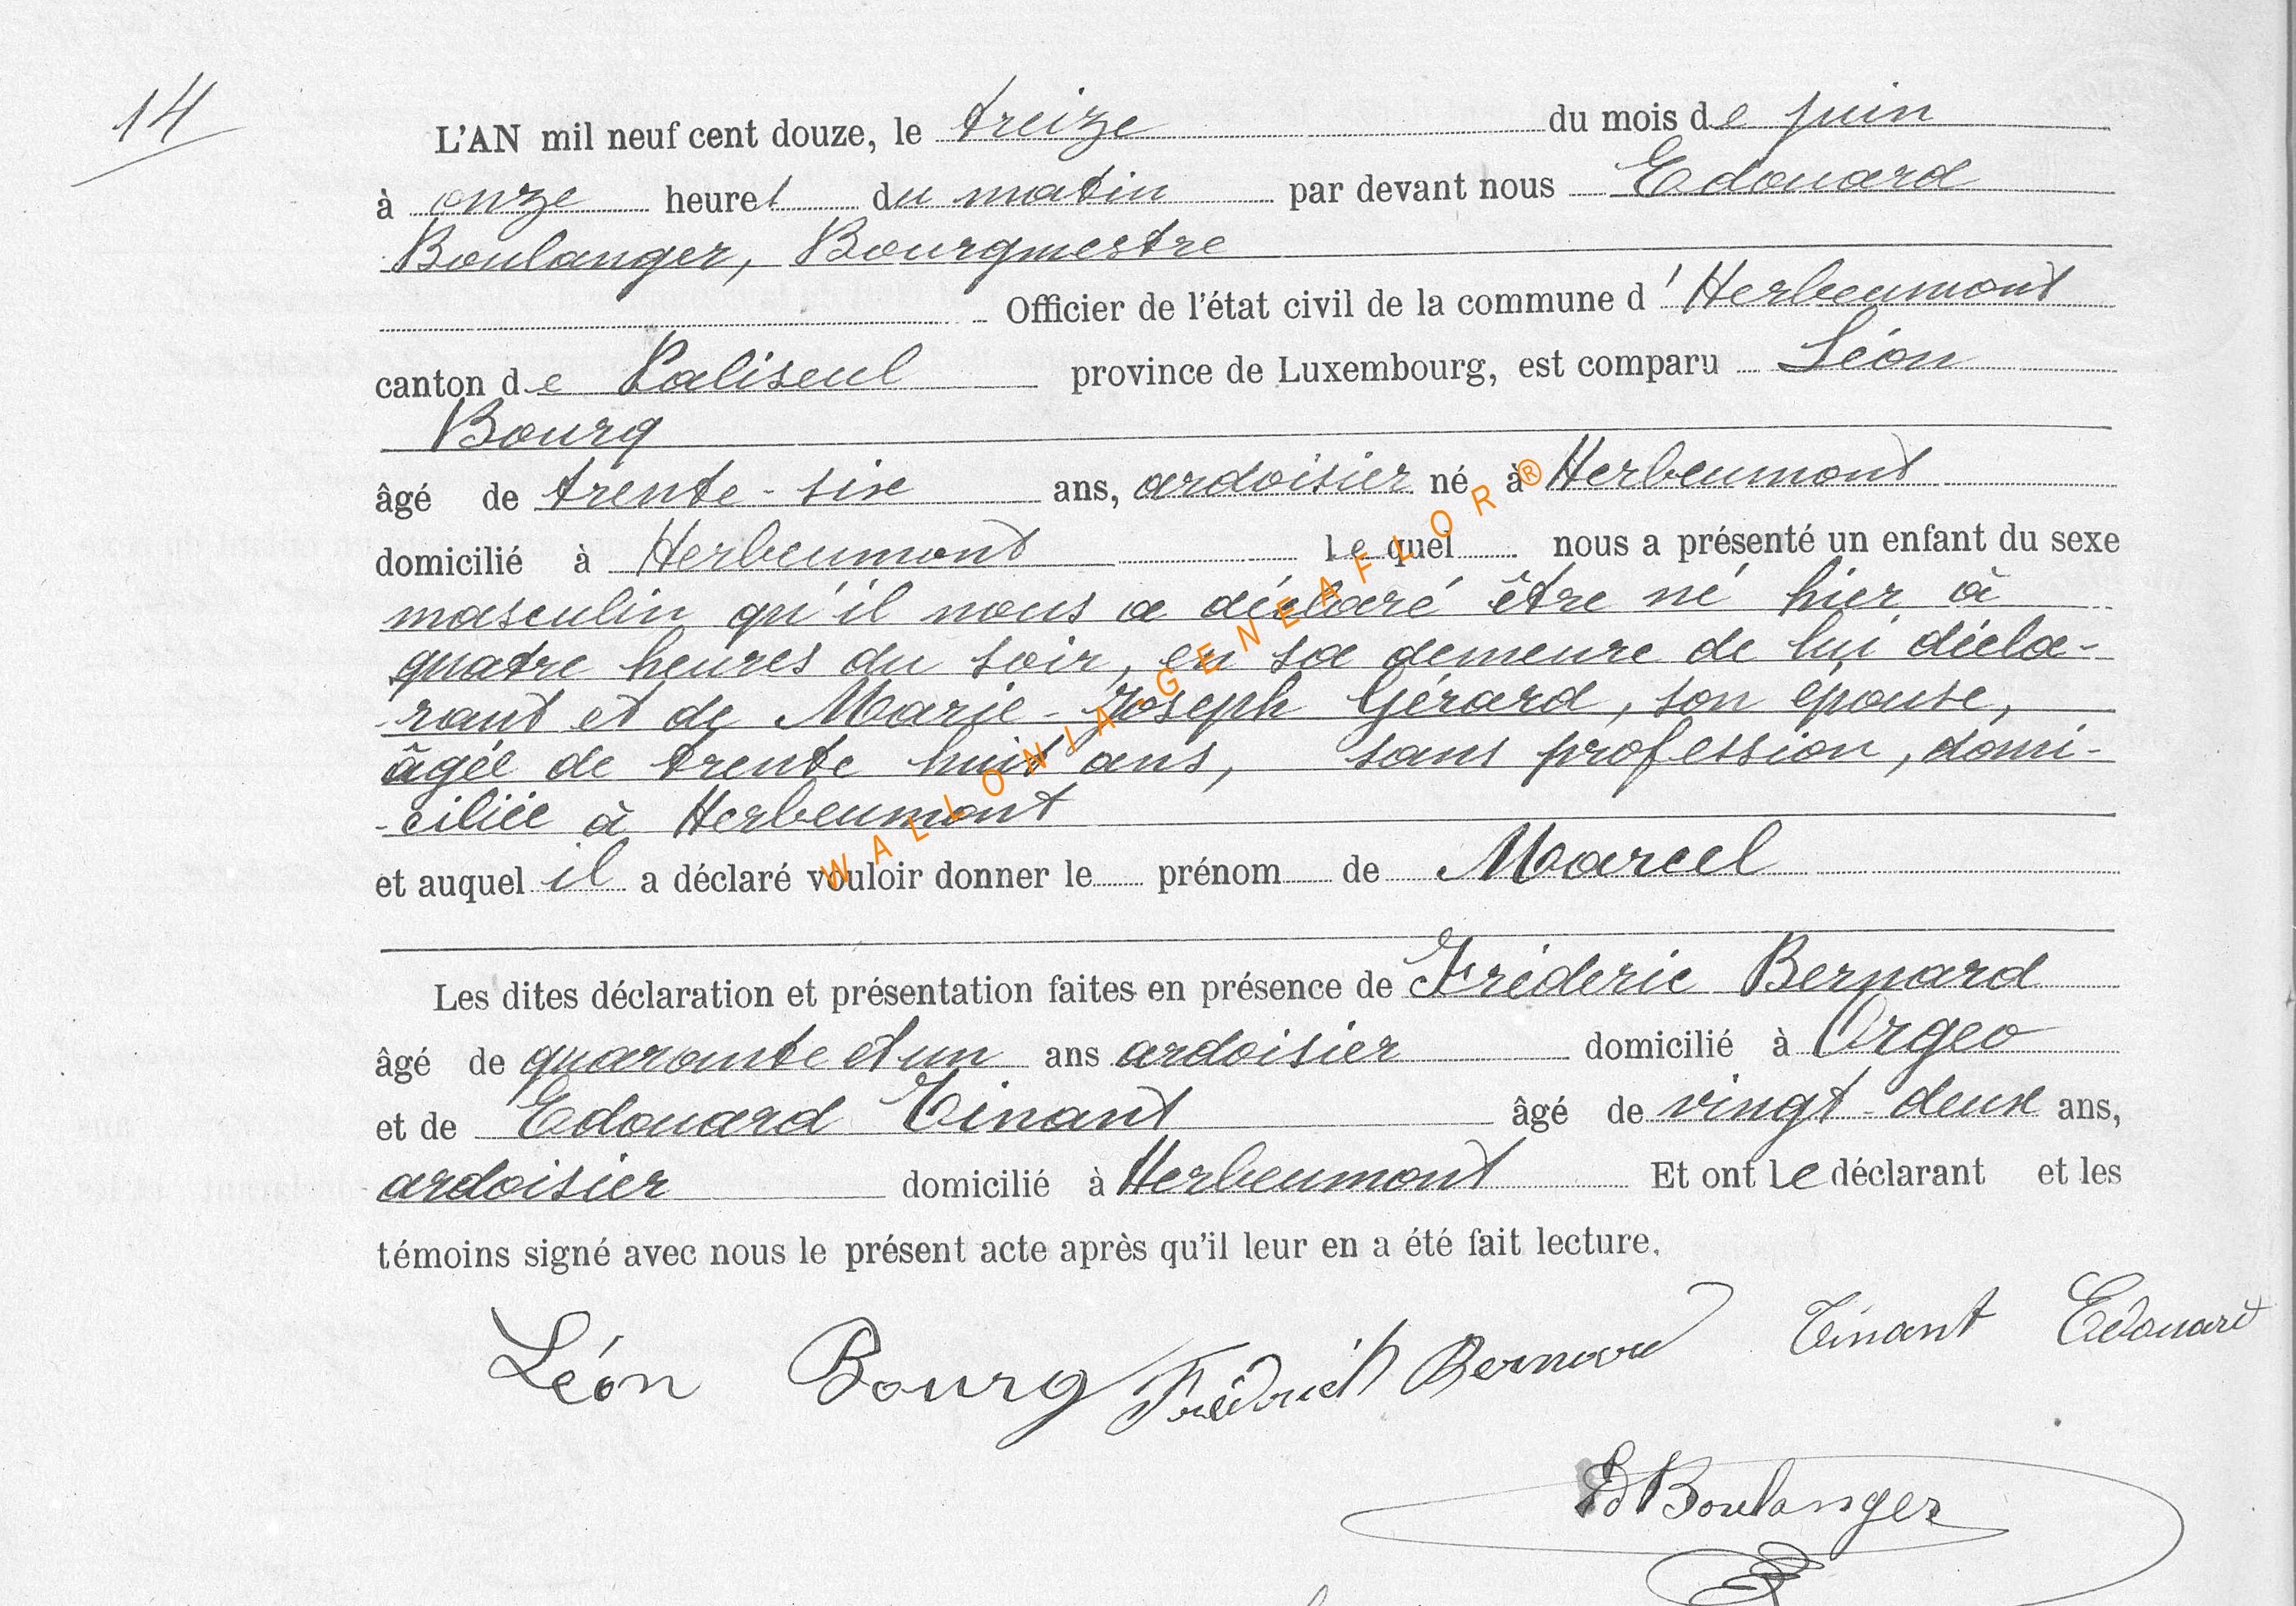 14
L'AN mil neuf cent douze, le treize du mois de juin
à onze heures du matin par devant nous Edouard
Boulanger, Bourgmestre
Officier de l'état civil de la commune d'Herbeumont
canton de Paliseul province de Luxembourg, est comparu Léon
Bourg
âgé de trente-six ans, ardoisier né à Herbeumont
domicilié à Herbeumont lequel nous a présenté un enfant du sexe
masculin qu'il nous a déclaré être né hier à
quatre heures du soir, en sa demeure de lui décla-
-rant et de Marie-Joseph Gérard, son épouse,
âgée de trente huit ans, sans profession, domi-
-ciliée à Herbeumont
et auquel il a déclaré vouloir donner le prénom de Marcel
Les dites déclaration et présentation faites en présence de Fréderic Bernard
âgé de quarante et un ans ardoisier domicilié à Orgeo
et de Edouard Tinant âgé de vingt-deux ans,
ardoisier domicilié à Herbeumont Et ont le déclarant et les
témoins signé avec nous le présent acte après qu'il leur en a été fait lecture.
Léon Bourg Bernard Tinant Edouard
Ed Boulanger
WALLONIA-GENEAFLOR®